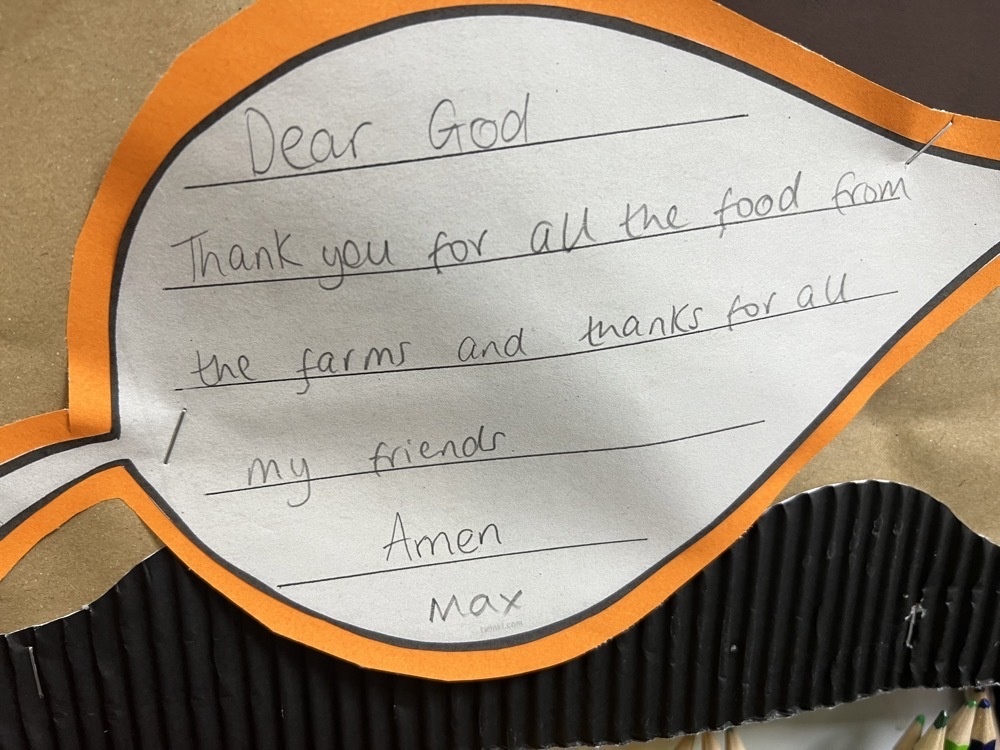 Dear God
Thank you for all the food from
the farms and thanks for all
my friends.
Amen
Max
twinkl.com